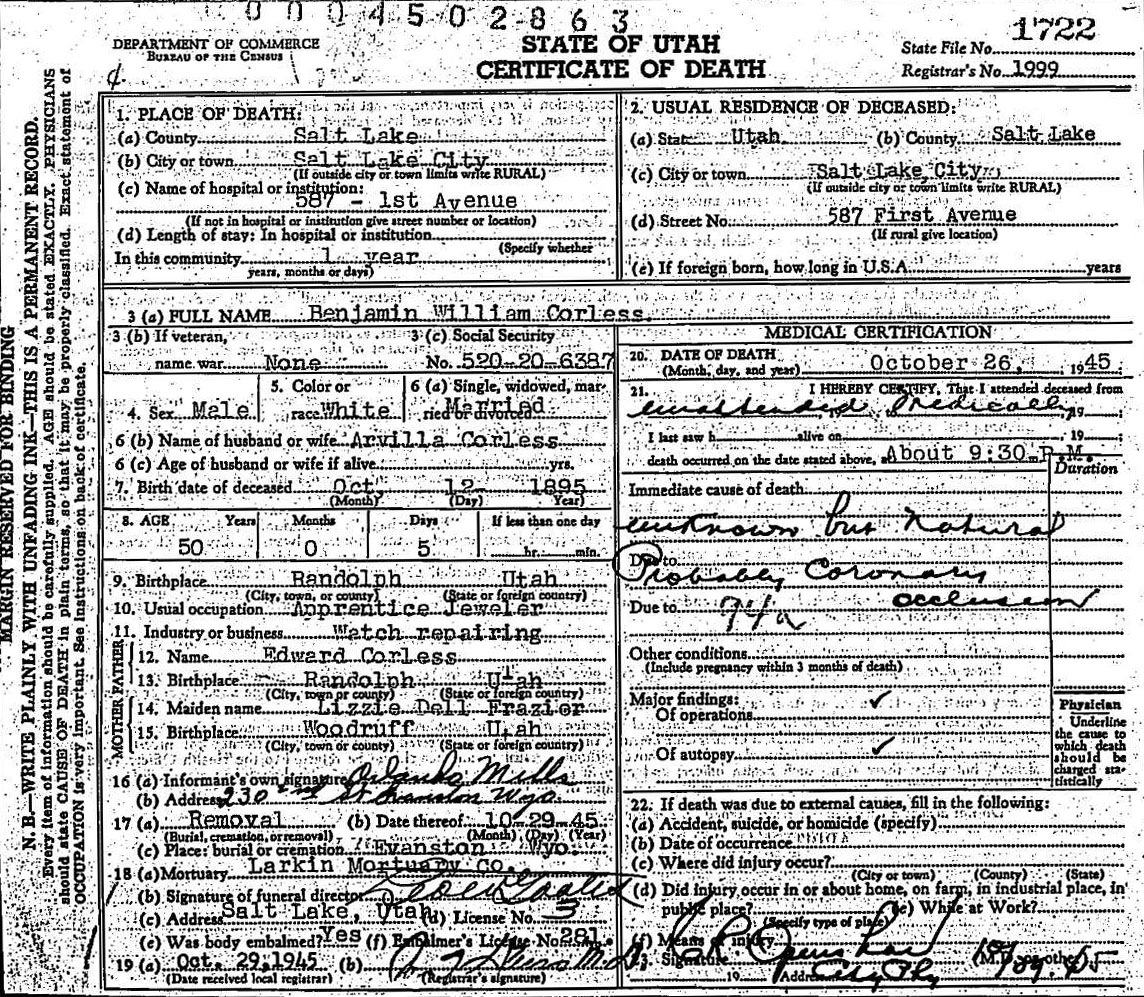 0004502863
DEPARTMENT OF COMMERCE
BUREAU OF THE CENSUS
STATE OF UTAH
CERTIFICATE OF DEATH
State File No. 1722
Registrar's No. 1999
MARGIN RESERVED FOR BINDING
N. B.—WRITE PLAINLY WITH UNFADING INK—THIS IS A PERMANENT RECORD.
Every item of information should be carefully supplied. AGE should be stated EXACTLY. PHYSICIANS
should state CAUSE OF DEATH in plain terms, so that it may be properly classified. Exact statement of
OCCUPATION is very important. See instructions on back of certificate.
1. PLACE OF DEATH:
(a) County Salt Lake
(b) City or town Salt Lake City
(If outside city or town limits write RURAL)
(c) Name of hospital or institution:
587 - 1st Avenue
(If not in hospital or institution give street number or location)
(d) Length of stay: In hospital or institution
(Specify whether
In this community 1 year
years, months or days)
2. USUAL RESIDENCE OF DECEASED:
(a) State Utah (b) County Salt Lake
(c) City or town Salt Lake City
(If outside city or town limits write RURAL)
(d) Street No. 587 First Avenue
(If rural give location)
(e) If foreign born, how long in U.S.A. years
3 (a) FULL NAME Benjamin William Corless
3 (b) If veteran, 3 (c) Social Security
name war None No. 520-20-6387
4. Sex Male 5. Color or race White 6 (a) Single, widowed, married or divorced Married
6 (b) Name of husband or wife Arvilla Corless
6 (c) Age of husband or wife if alive yrs.
7. Birth date of deceased Oct 12 1895
(Month) (Day) Year)
8. AGE Years Months Days If less than one day
50 0 5 hr. min.
9. Birthplace Randolph Utah
(City, town, or county) (State or foreign country)
10. Usual occupation Apprentice Jeweler
11. Industry or business Watch repairing
FATHER
12. Name Edward Corless
13. Birthplace Randolph Utah
(City, town or county) (State or foreign country)
MOTHER
14. Maiden name Lizzie Dell Frazier
15. Birthplace Woodruff Utah
(City, town or county) (State or foreign country)
16 (a) Informant's own signature Mills
(b) Address 230 St Evanston Wyo
17 (a) Removal (b) Date thereof 10-29-45
(Burial, cremation, or removal) (Month) (Day) (Year)
(c) Place: burial or cremation Evanston Wyo.
18 (a) Mortuary Larkin Mortuary Co.
(b) Signature of funeral director
(c) Address Salt Lake, Utah (d) License No. 3
(e) Was body embalmed? Yes (f) Embalmer's License No. 281
19 (a) Oct. 29, 1945 (b)
(Date received local registrar) (Registrar's signature)
MEDICAL CERTIFICATION
20. DATE OF DEATH October 26, 1945
(Month, day, and year)
21. I HEREBY CERTIFY, That I attended deceased from
unattended Medically, 19
I last saw h alive on 19
death occurred on the date stated above, a About 9:30 P.M.
Duration
Immediate cause of death
unknown but Natural
Due to Probably Coronary
Due to occlusion
94a
Other conditions
(Include pregnancy within 3 months of death)
Major findings: ✓
Of operations
Of autopsy ✓
Physician
Underline
the cause to
which death
should be
charged sta-
tistically
22. If death was due to external causes, fill in the following:
(a) Accident, suicide, or homicide (specify)
(b) Date of occurrence
(c) Where did injury occur?
(City or town) (County) (State)
(d) Did injury occur in or about home, on farm, in industrial place, in
public place? (e) While at Work?
(Specify type of place)
(f) Means of injury
23. Signature (M.D. or other)
19 Address City Phy 10/29/45